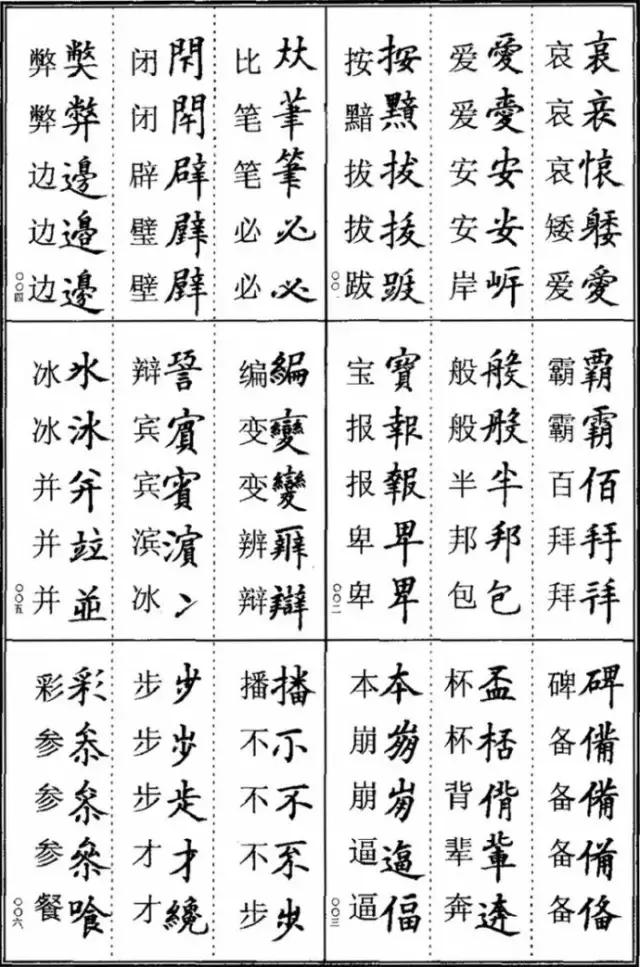 哀 哀
哀
哀
矮 躷
爱 愛
爱 愛
爱
安 安
安 安
岸 岓
按 按
黯
拔 拔
拔
跋
〇〇一
霸 覇
霸 霸
百 佰
拜 拜
拜
般 般
般 般
半 半
邦 邦
包 包
宝 寶
报 報
报 報
卑 卑
卑 卑
〇〇二
碑 碑
备 備
备 備
备 备
备
杯 盃
杯 桮
背 偝
辈 輩
奔 逩
本 夲
崩
崩
逼 逼
逼 偪
〇〇三
比
笔 茟
笔 筆
必 必
必 必
闭 閇
闭 閉
辟 辟
璧
壁
弊
弊 弊
边 邊
边 邉
边 邊
〇〇四
编 編
变 變
变 變
辨
辩 辯
辩
宾 賔
宾 賓
滨 濵
冰 冫
冰 氷
冰 冰
并 并
并 竝
并 並
〇〇五
播 播
不
不 不
不
步 步
步 步
步 歨
步
才 才
才 纔
彩 彩
参 叅
参 叅
参 叅
餐 飡
〇〇六